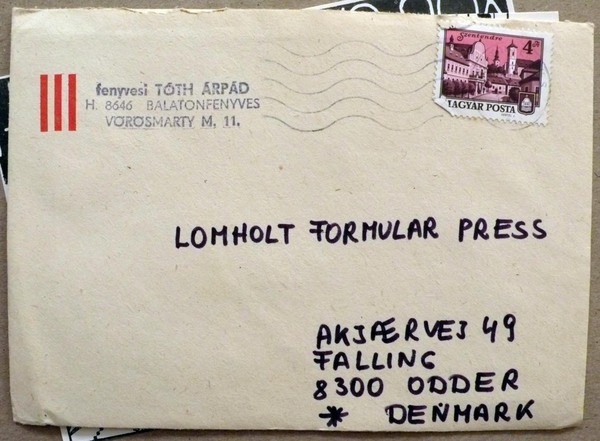 fenyvesi TÓTH ÁRPÁD
H. 8646 BALATONFENYVES
VÖRÖSMARTY M. 11.
Szentendre
4 Ft
MAGYAR POSTA
LOMHOLT FORMULAR PRESS
AKJÆRVEJ 49
FALLING
8300 ODDER
* DENMARK